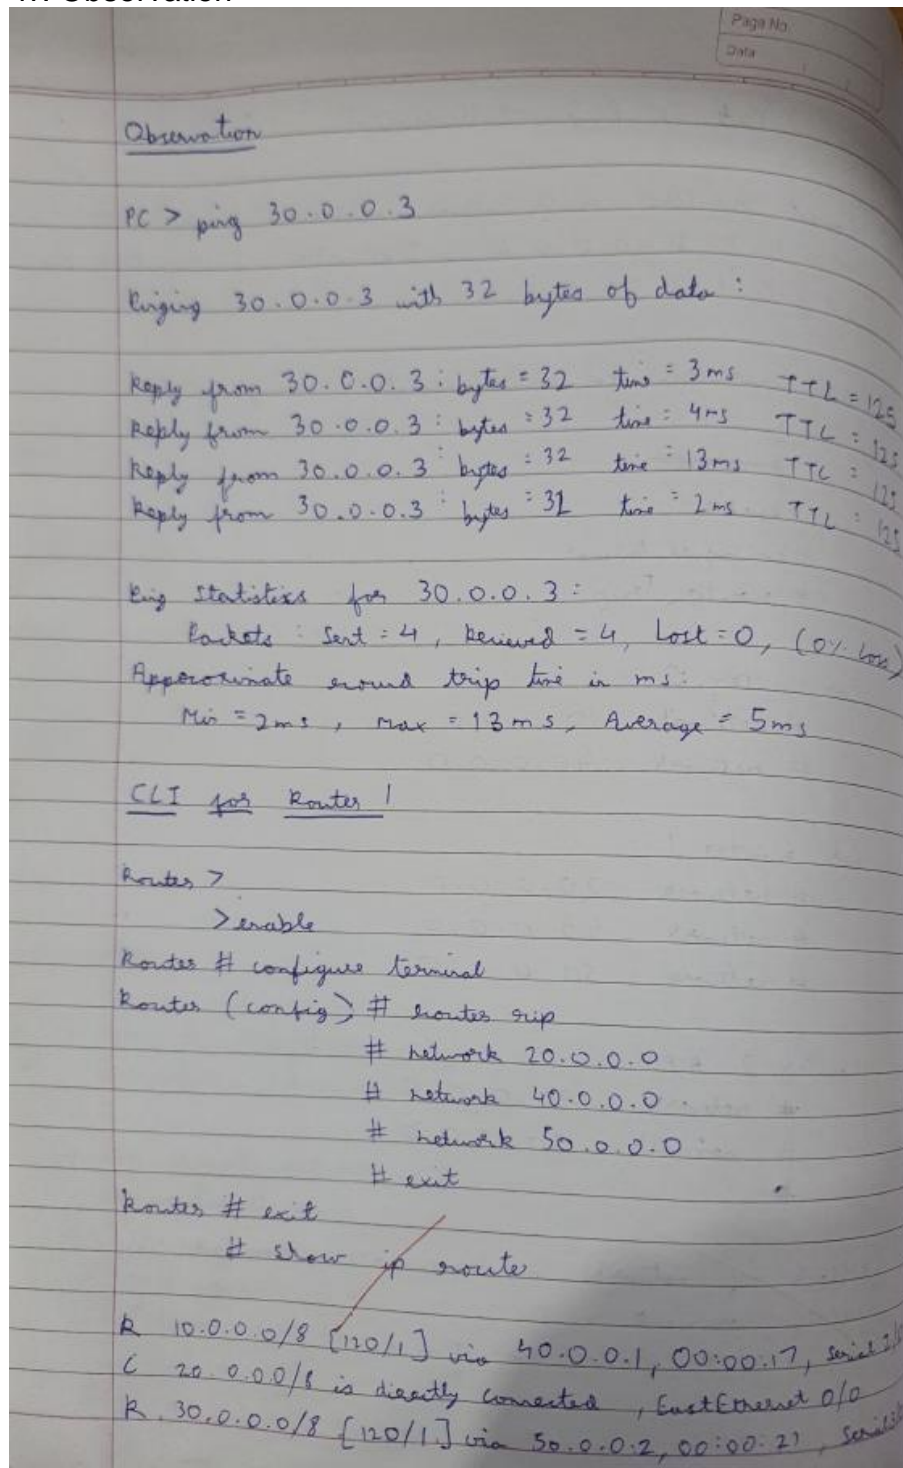 Observation
Page No.
Date
Observation
PC > ping 30.0.0.3
Pinging 30.0.0.3 with 32 bytes of data :
Reply from 30.0.0.3 : bytes = 32 time = 3ms TTL = 125
Reply from 30.0.0.3 : bytes = 32 time = 4ms TTL = 125
Reply from 30.0.0.3 : bytes = 32 time = 13ms TTL = 125
Reply from 30.0.0.3 : bytes = 32 time = 2ms TTL = 125
Ping Statistics for 30.0.0.3 :
Packets : Sent = 4, Recieved = 4, Lost = 0, (0% loss)
Approximate round trip time in ms :
Min = 2ms, Max = 13ms, Average = 5ms
CLI for Router 1
Router >
>enable
Router # configure terminal
Router (config) # router rip
# network 20.0.0.0
# network 40.0.0.0
# network 50.0.0.0
# exit
Router # exit
# show ip route
R 10.0.0.0/8 [120/1] via 40.0.0.1, 00:00:17, Serial
C 20.0.0.0/8 is directly connected, FastEthernet 0/0
R 30.0.0.0/8 [120/1] via 50.0.0.2, 00:00:21, Serial